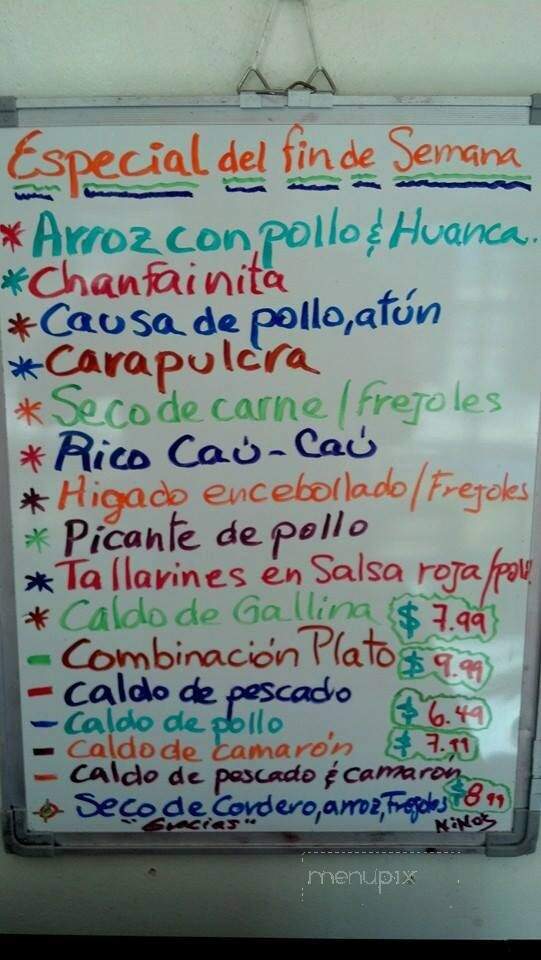 Especial del fin de Semana
* Arroz con pollo & Huanca.
* Chanfainita
* Causa de pollo, atún
* Carapulcra
* Seco de carne / Frejoles
* Rico Caú-Caú
* Higado encebollado / Frejoles
* Picante de pollo
* Tallarines en Salsa roja / pollo
* Caldo de Gallina $7.99
- Combinación Plato $9.99
- Caldo de pescado
- Caldo de pollo $6.49
- Caldo de camarón $7.99
- Caldo de pescado & camarón
* Seco de Cordero, arroz, Frejoles $8.99
"Gracias" Ninos
menupix